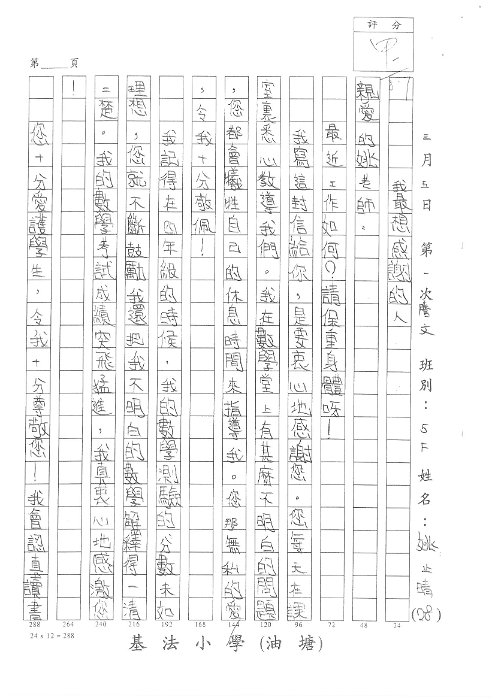 評分
甲
81
第　頁
三月五日　第一次作文　班別：5F　姓名：姚止晴(28)
我最想感謝的人
親愛的姚老師。
最近工作如何？請保重身體呀！
我寫這封信給你，是要衷心地感謝您。您每天在課
室裏悉心教導我們。我在數學堂上有甚麼不明白的問題
，您都會犧牲自己的休息時間來指導我。您那無私的愛
，令我十分敬佩！
我記得在四年級的時候，我的數學測驗的分數未如
理想，您就不斷鼓勵我還把我不明白的數學解釋得一清
二楚。我的數學考試成績突飛猛進，我真衷心地感激您
！
您十分愛護學生，令我十分尊敬您！我會認真讀書
24
48
72
96
120
144
168
192
216
240
264
288
24 x 12 = 288
基法小學(油塘)